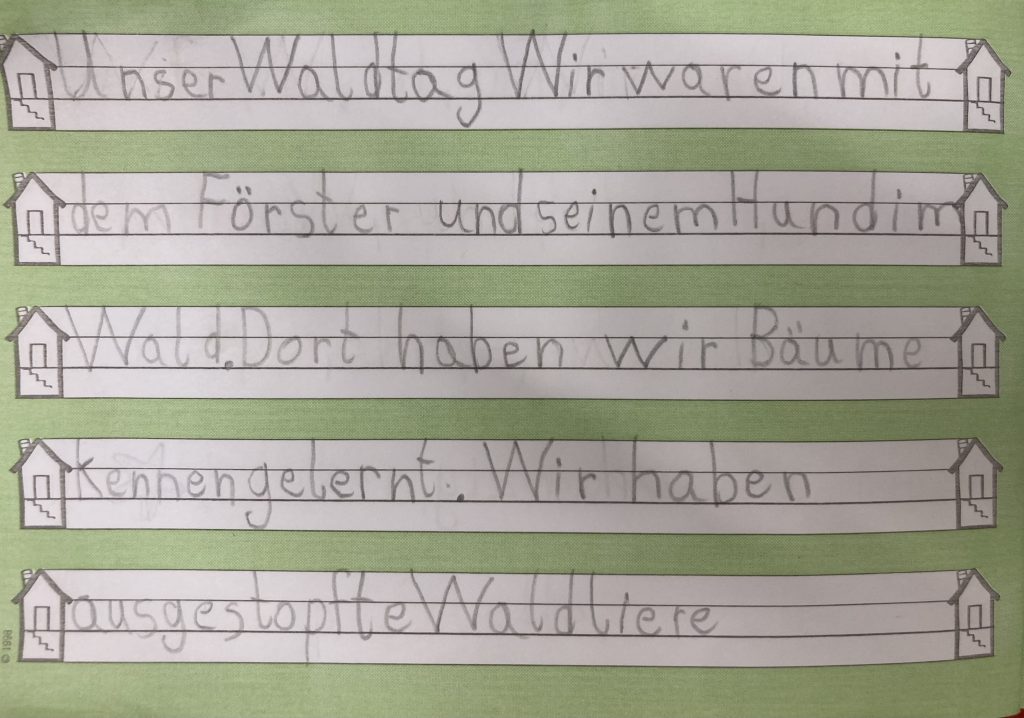 Unser Waldtag Wir waren mit
dem Förster und seinem Hund im
Wald. Dort haben wir Bäume
kennengelernt. Wir haben
ausgestopfte Waldtiere
© 1998